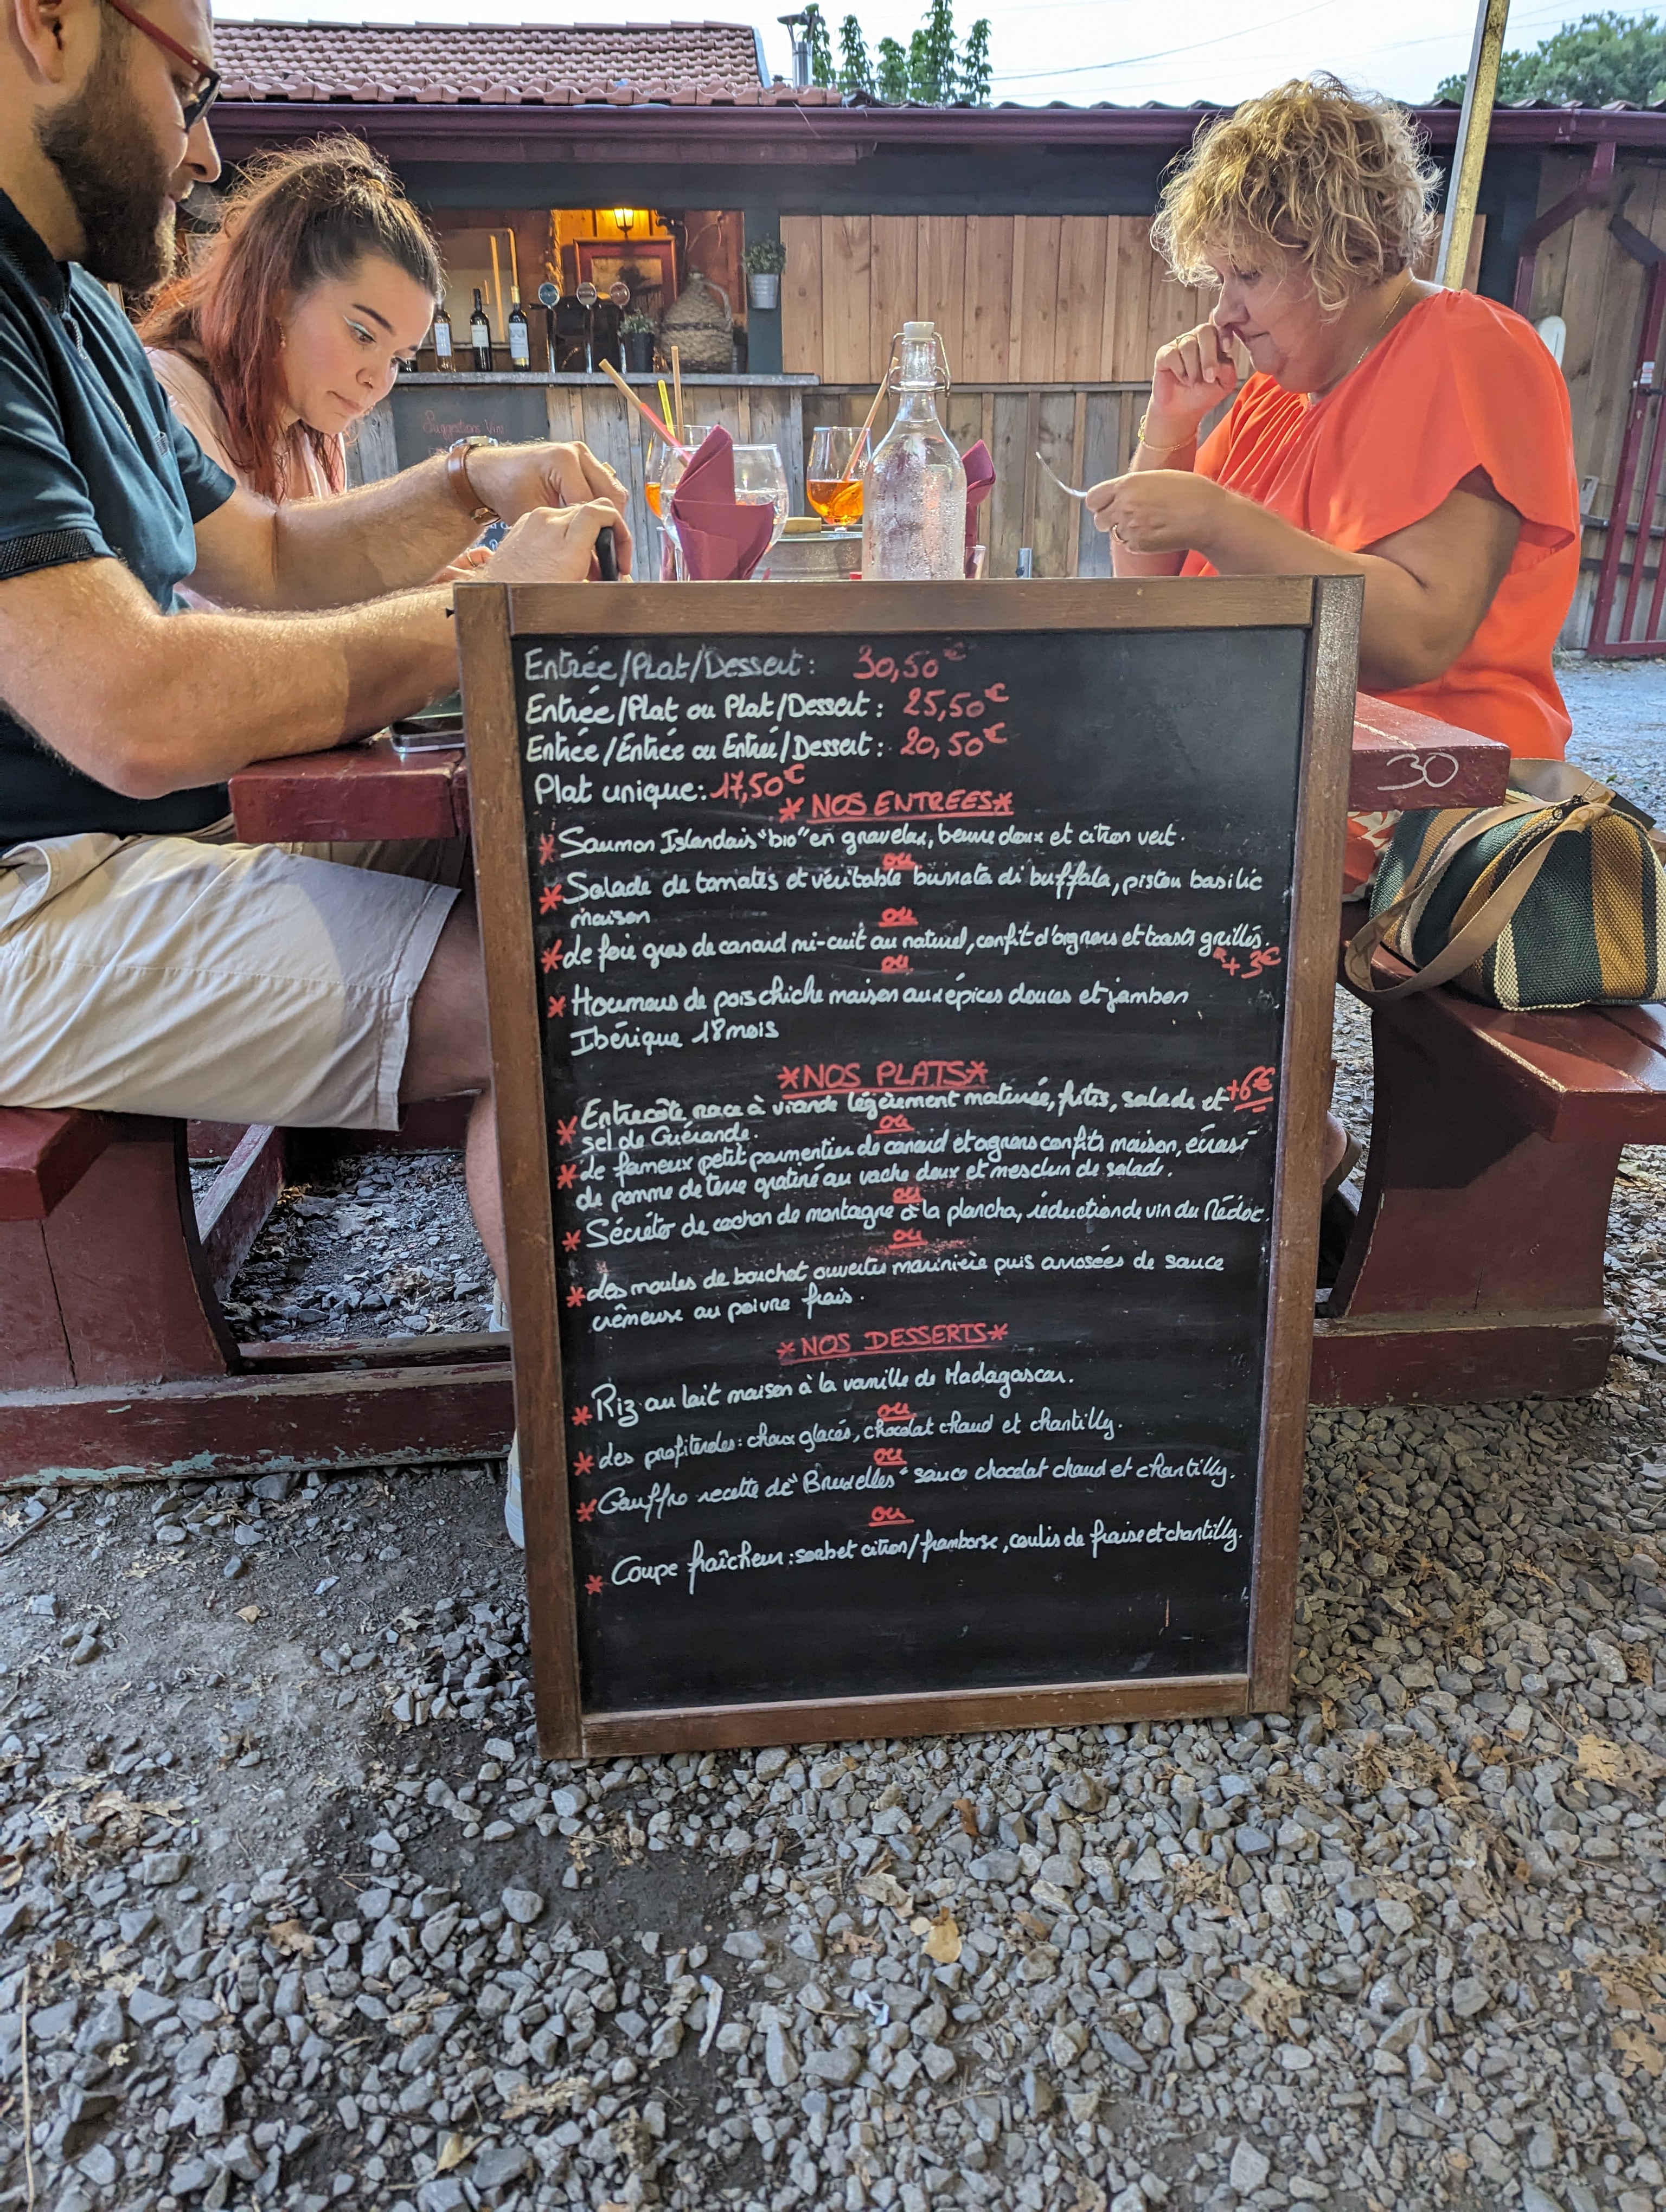 Suggestions Vins
30
Entrée/Plat/Dessert : 30,50€
Entrée/Plat ou Plat/Dessert : 25,50€
Entrée/Entrée ou Entrée/Dessert : 20,50€
Plat unique : 17,50€
*NOS ENTREES*
* Saumon Islandais "bio" en gravelax, beurre doux et citron vert.
ou
* Salade de tomates et véritable burrata di buffala, pistou basilic
maison
ou
* Le foie gras de canard mi-cuit au naturel, confit d'oignons et toasts grillés.
ou
*+3€
* Houmous de pois chiche maison aux épices douces et jambon
Ibérique 18 mois
*NOS PLATS*
* Entrecôte race à viande légèrement maturée, frites, salade et +6€
sel de Guérande.
ou
* Le fameux petit parmentier de canard et oignons confits maison, écrasé
de pomme de terre gratiné au vache doux et mesclun de salade.
ou
* Sécréto de cochon de montagne à la plancha, réduction de vin du Médoc.
ou
* Les moules de bouchot ouvertes marinière puis arrosées de sauce
crêmeuse au poivre frais.
*NOS DESSERTS*
* Riz au lait maison à la vanille de Madagascar.
ou
* Les profiteroles : choux glacés, chocolat chaud et chantilly.
ou
* Gauffre recette de "Bruxelles" sauce chocolat chaud et chantilly.
ou
* Coupe fraîcheur : sorbet citron/framboise, coulis de fraise et chantilly.